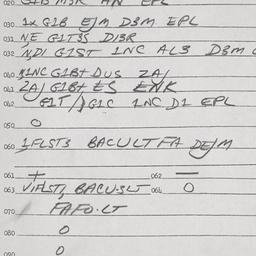 020. G1B M3R AN EPL
030. 1x G1B E/M D3M EPL
031. NE G1T3S D13R
032. N,D1 G1ST 1NC AL3 D3M
040. 1NC G1B+ DUS ZA/
041. ZA/ G1B+ ES ENK
G1T / G1C 1NC D1 EPL
050. O
060. 1FLST3 BACULTFA DE/M
061. + 062. —
063. V1FLST, BACU-SLT 064. O
070. FAFO-LT
080. O
090 O